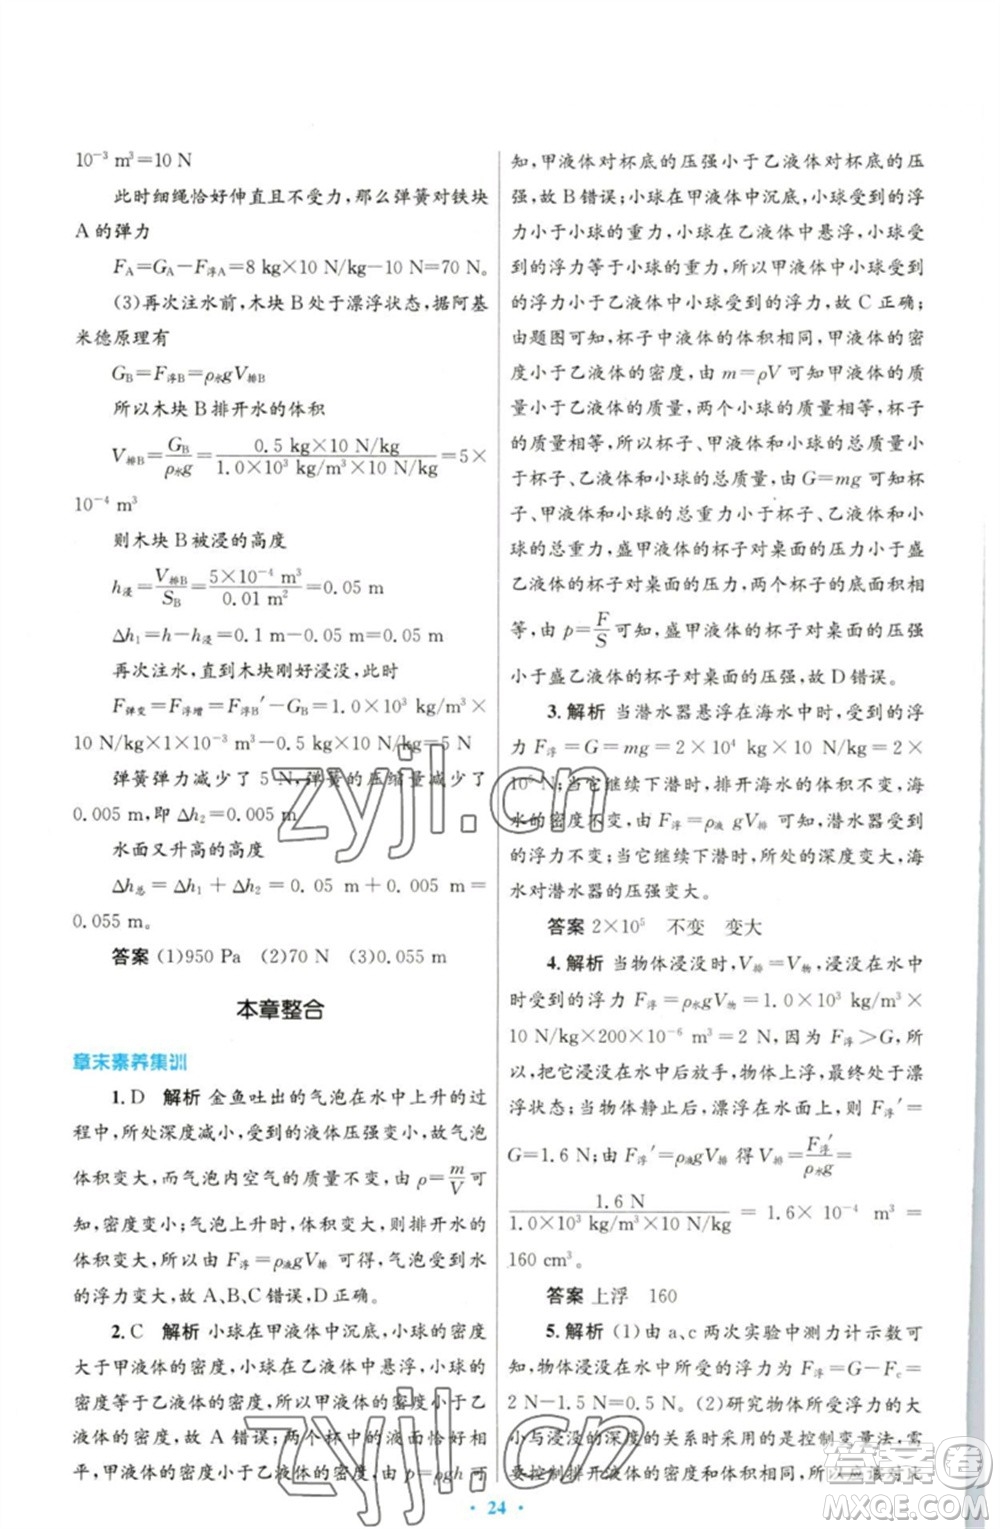 10⁻³ m³=10 N
此时细绳恰好伸直且不受力，那么弹簧对铁块
A 的弹力
F_A=G_A－F_浮A=8 kg×10 N/kg－10 N=70 N。
(3)再次注水前，木块 B 处于漂浮状态，据阿基
米德原理有
G_B=F_浮B=ρ_水gV_排B
所以木块 B 排开水的体积
V_排B=G_B/ρ_水g=0.5 kg×10 N/kg/1.0×10³ kg/m³×10 N/kg=5×
10⁻⁴ m³
则木块 B 被浸的高度
h_浸=V_排B/S_B=5×10⁻⁴ m³/0.01 m²=0.05 m
Δh₁=h－h_浸=0.1 m－0.05 m=0.05 m
再次注水，直到木块刚好浸没，此时
F_弹变=F_浮增=F_浮B′－G_B=1.0×10³ kg/m³×
10 N/kg×1×10⁻³ m³－0.5 kg×10 N/kg=5 N
弹簧弹力减少了 5 N，弹簧的压缩量减少了
0.005 m，即 Δh₂=0.005 m
水面又升高的高度
Δh_总=Δh₁+Δh₂=0.05 m+0.005 m=
0.055 m。
答案 (1)950 Pa (2)70 N (3)0.055 m
本章整合
章末素养集训
1. D 解析 金鱼吐出的气泡在水中上升的过
程中，所处深度减小，受到的液体压强变小，故气泡
体积变大；气泡内空气的质量不变，由 ρ=m/V 可
知，密度变小；气泡上升时，体积变大，则排开水的体
积变大，所以由 F_浮=ρ_液gV_排 可得，气泡受到水
的浮力变大，故 A、B、C 错误，D 正确。
2. C 解析 小球在甲液体中沉底，小球的密度
大于甲液体的密度，小球在乙液体中悬浮，小球的密
度等于乙液体的密度，所以甲液体的密度小于乙液
体的密度，故 A 错误；两个杯中的液体的液面相
平，甲液体的密度小于乙液体的密度，由 p=ρgh 可
知，甲液体对杯底的压强小于乙液体对杯底的压
强，故 B 错误；小球在甲液体中沉底，小球受到的浮
力小于小球的重力，小球在乙液体中悬浮，小球受到
的浮力等于小球的重力，所以甲液体中小球受到
的浮力小于乙液体中小球受到的浮力，故 C 正确；
由题图可知，杯子中液体的体积相同，甲液体的密
度小于乙液体的密度，由 m=ρV 可知甲液体的质量
小于乙液体的质量，两个小球的质量相等，杯子
的质量相等，所以杯子、甲液体和小球的总质量小
于杯子、乙液体和小球的总质量，由 G=mg 可知杯
子、甲液体和小球的总重力小于杯子、乙液体和小
球的总重力，盛甲液体的杯子对桌面的压力小于盛
乙液体的杯子对桌面的压力，两个杯子的底面积相
等，由 p=F/S可知，盛甲液体的杯子对桌面的压强
小于盛乙液体的杯子对桌面的压强，故 D 错误。
3. 解析 当潜水器悬浮在海水中时，受到的浮
力 F_浮=G=mg=2×10⁴ kg×10 N/kg=2×
10⁵ N；当它继续下潜时，排开海水的体积不变，海
水的密度不变，由 F_浮=ρ_液gV_排 可知，潜水器受到
的浮力不变；当它继续下潜时，所处的深度变大，海
水对潜水器的压强变大。
答案 2×10⁵ 不变 变大
4. 解析 当物体浸没时，V_排=V_物，浸没在水中
时受到的浮力 F_浮=ρ_水gV_物=1.0×10³ kg/m³×
10 N/kg×200×10⁻⁶ m³=2 N，因为 F_浮＞G，所
以，把它浸没在水中后放手，物体上浮，最终处于漂
浮状态；当物体静止后，漂浮在水面上，则 F_浮′=
G=1.6 N；由 F_浮′=ρ_水gV_排 得 V_排=F_浮′/ρ_水g=
1.6 N/1.0×10³ kg/m³×10 N/kg=1.6×10⁻⁴ m³=
160 cm³。
答案 上浮 160
5. 解析 (1)由 a、c 两次实验中测力计示数可
知，物体浸没在水中所受的浮力为 F_浮=G－F_c=
2 N－1.5 N=0.5 N。(2)研究物体所受浮力的大
小与浸没的深度的关系时采用的是控制变量法，需
要控制排开液体的体积和液体的密度不变，所以应该
· 24 ·
zyjl.cn
zyjl.cn
答案圈
MXQE.COM